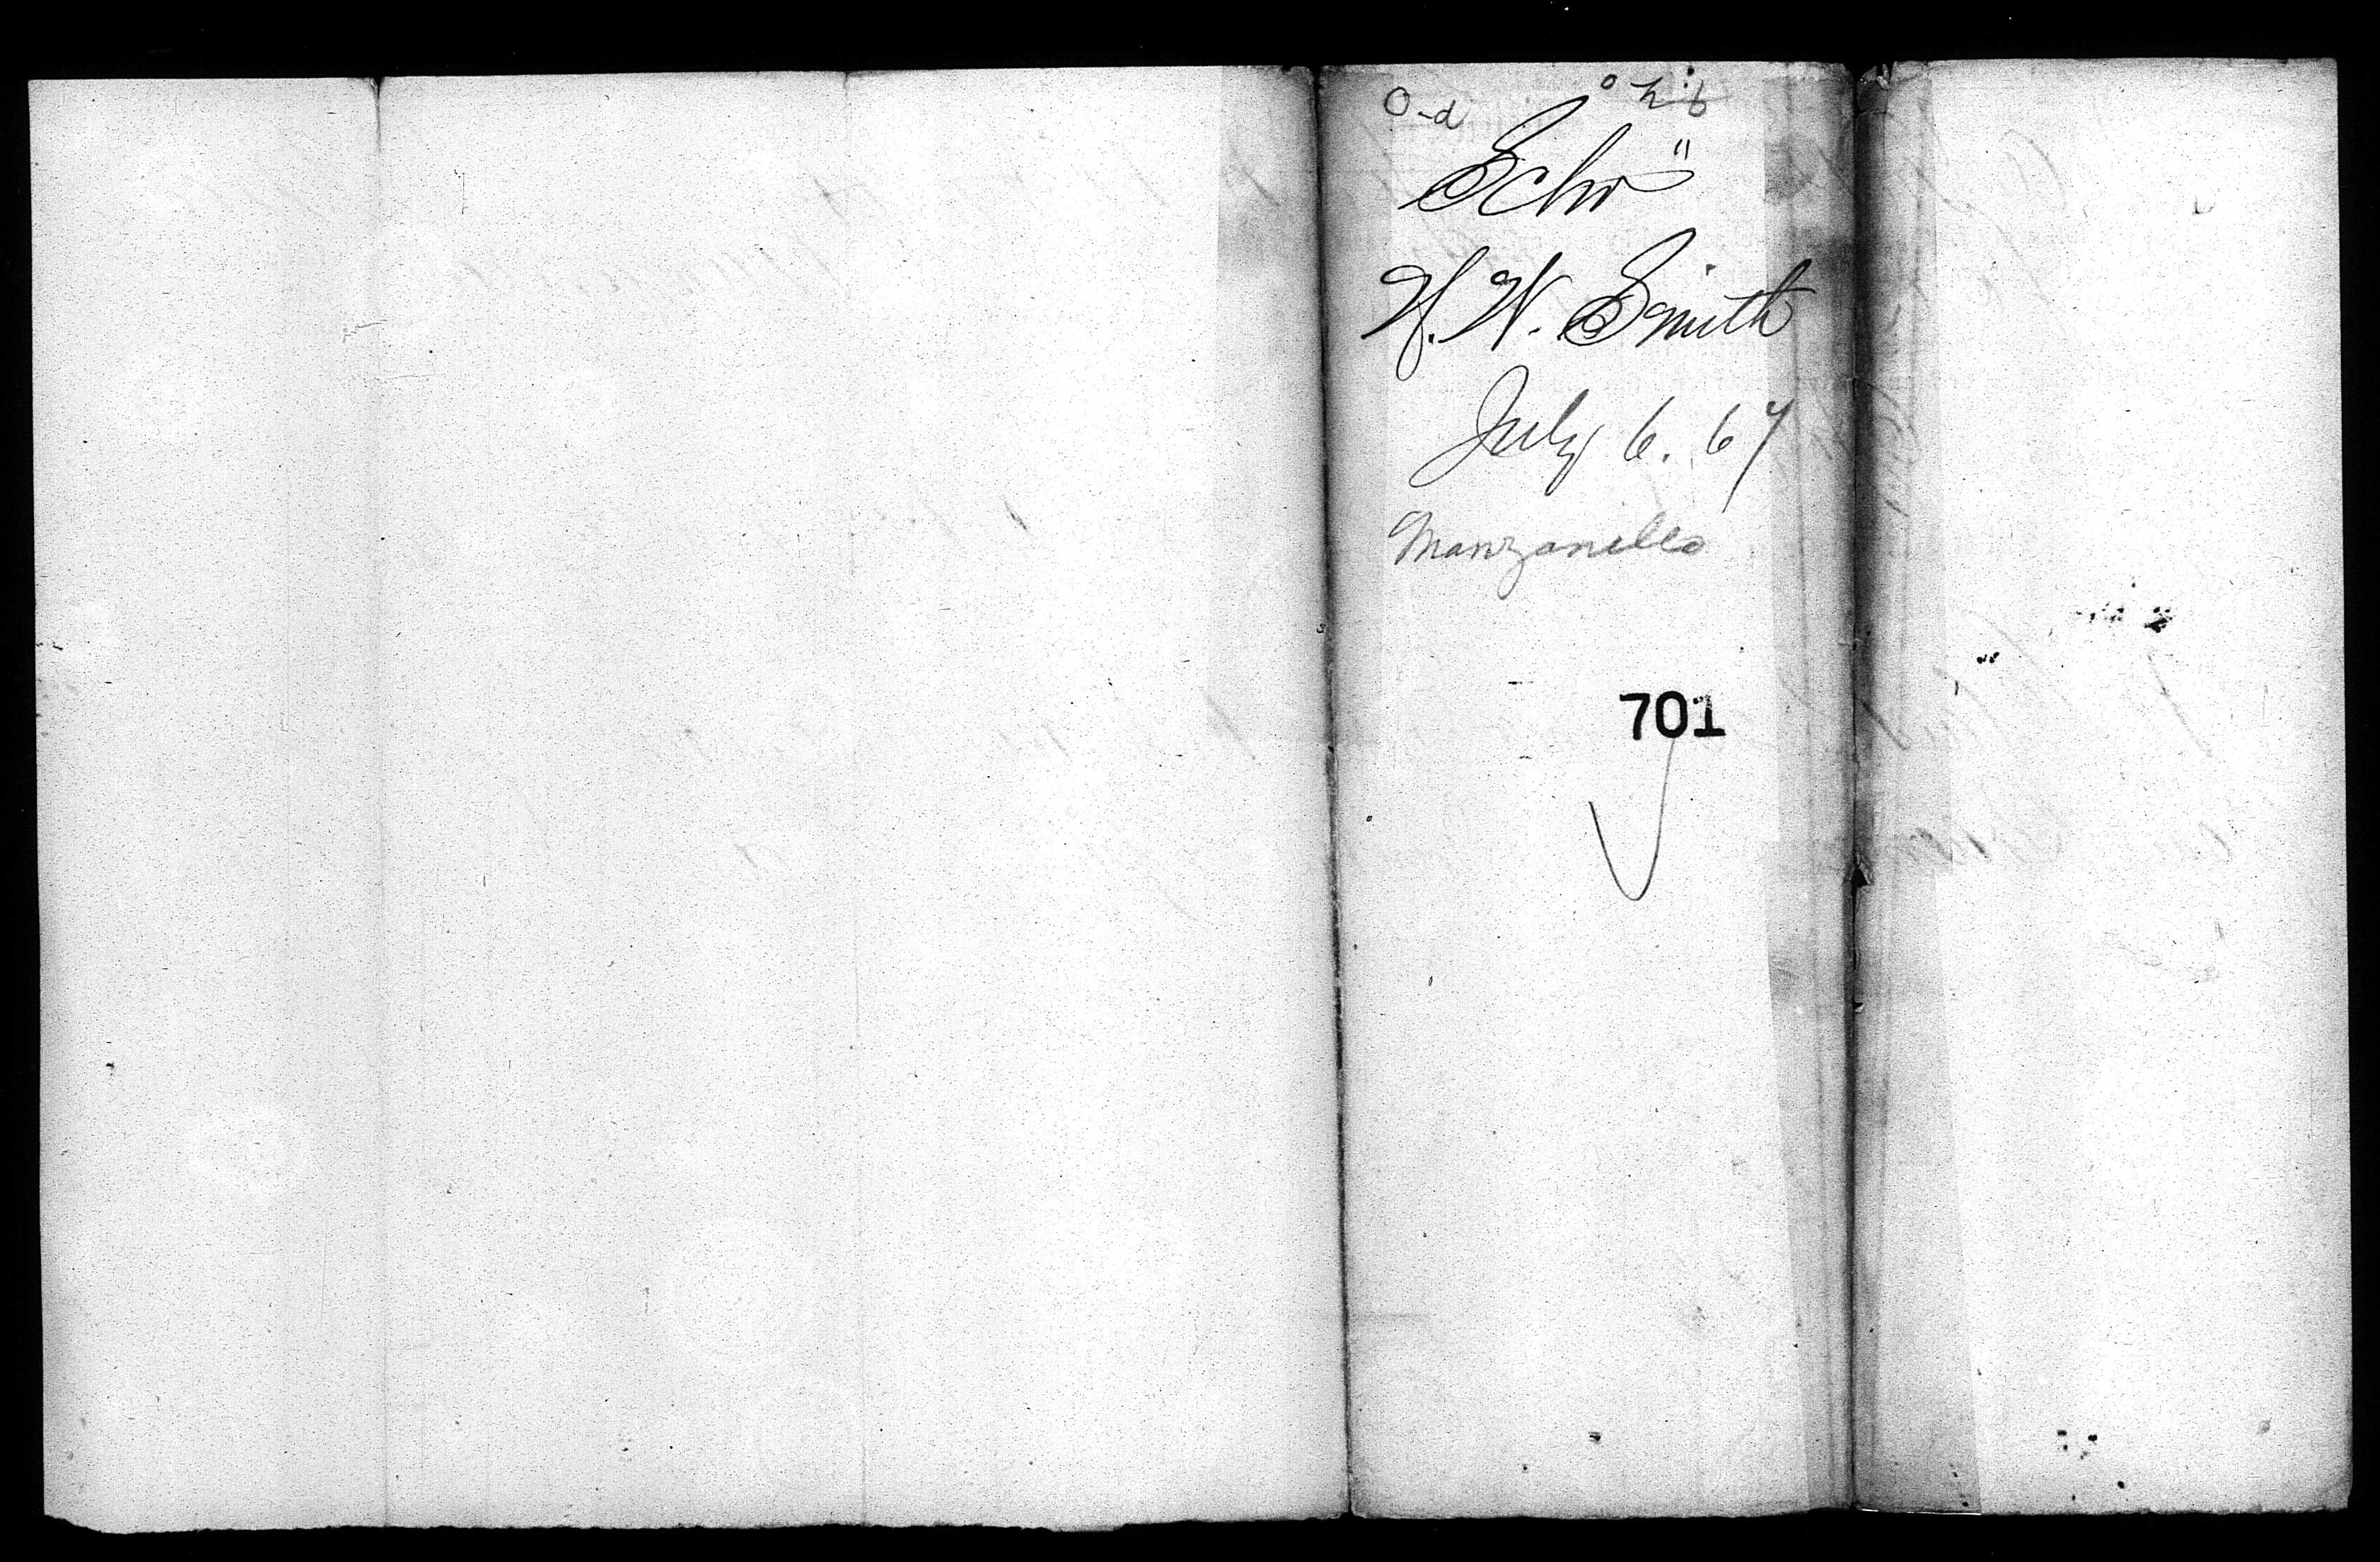 O-d
Schr "
H. W. Smith
July 6. 67
Manzanillo
701